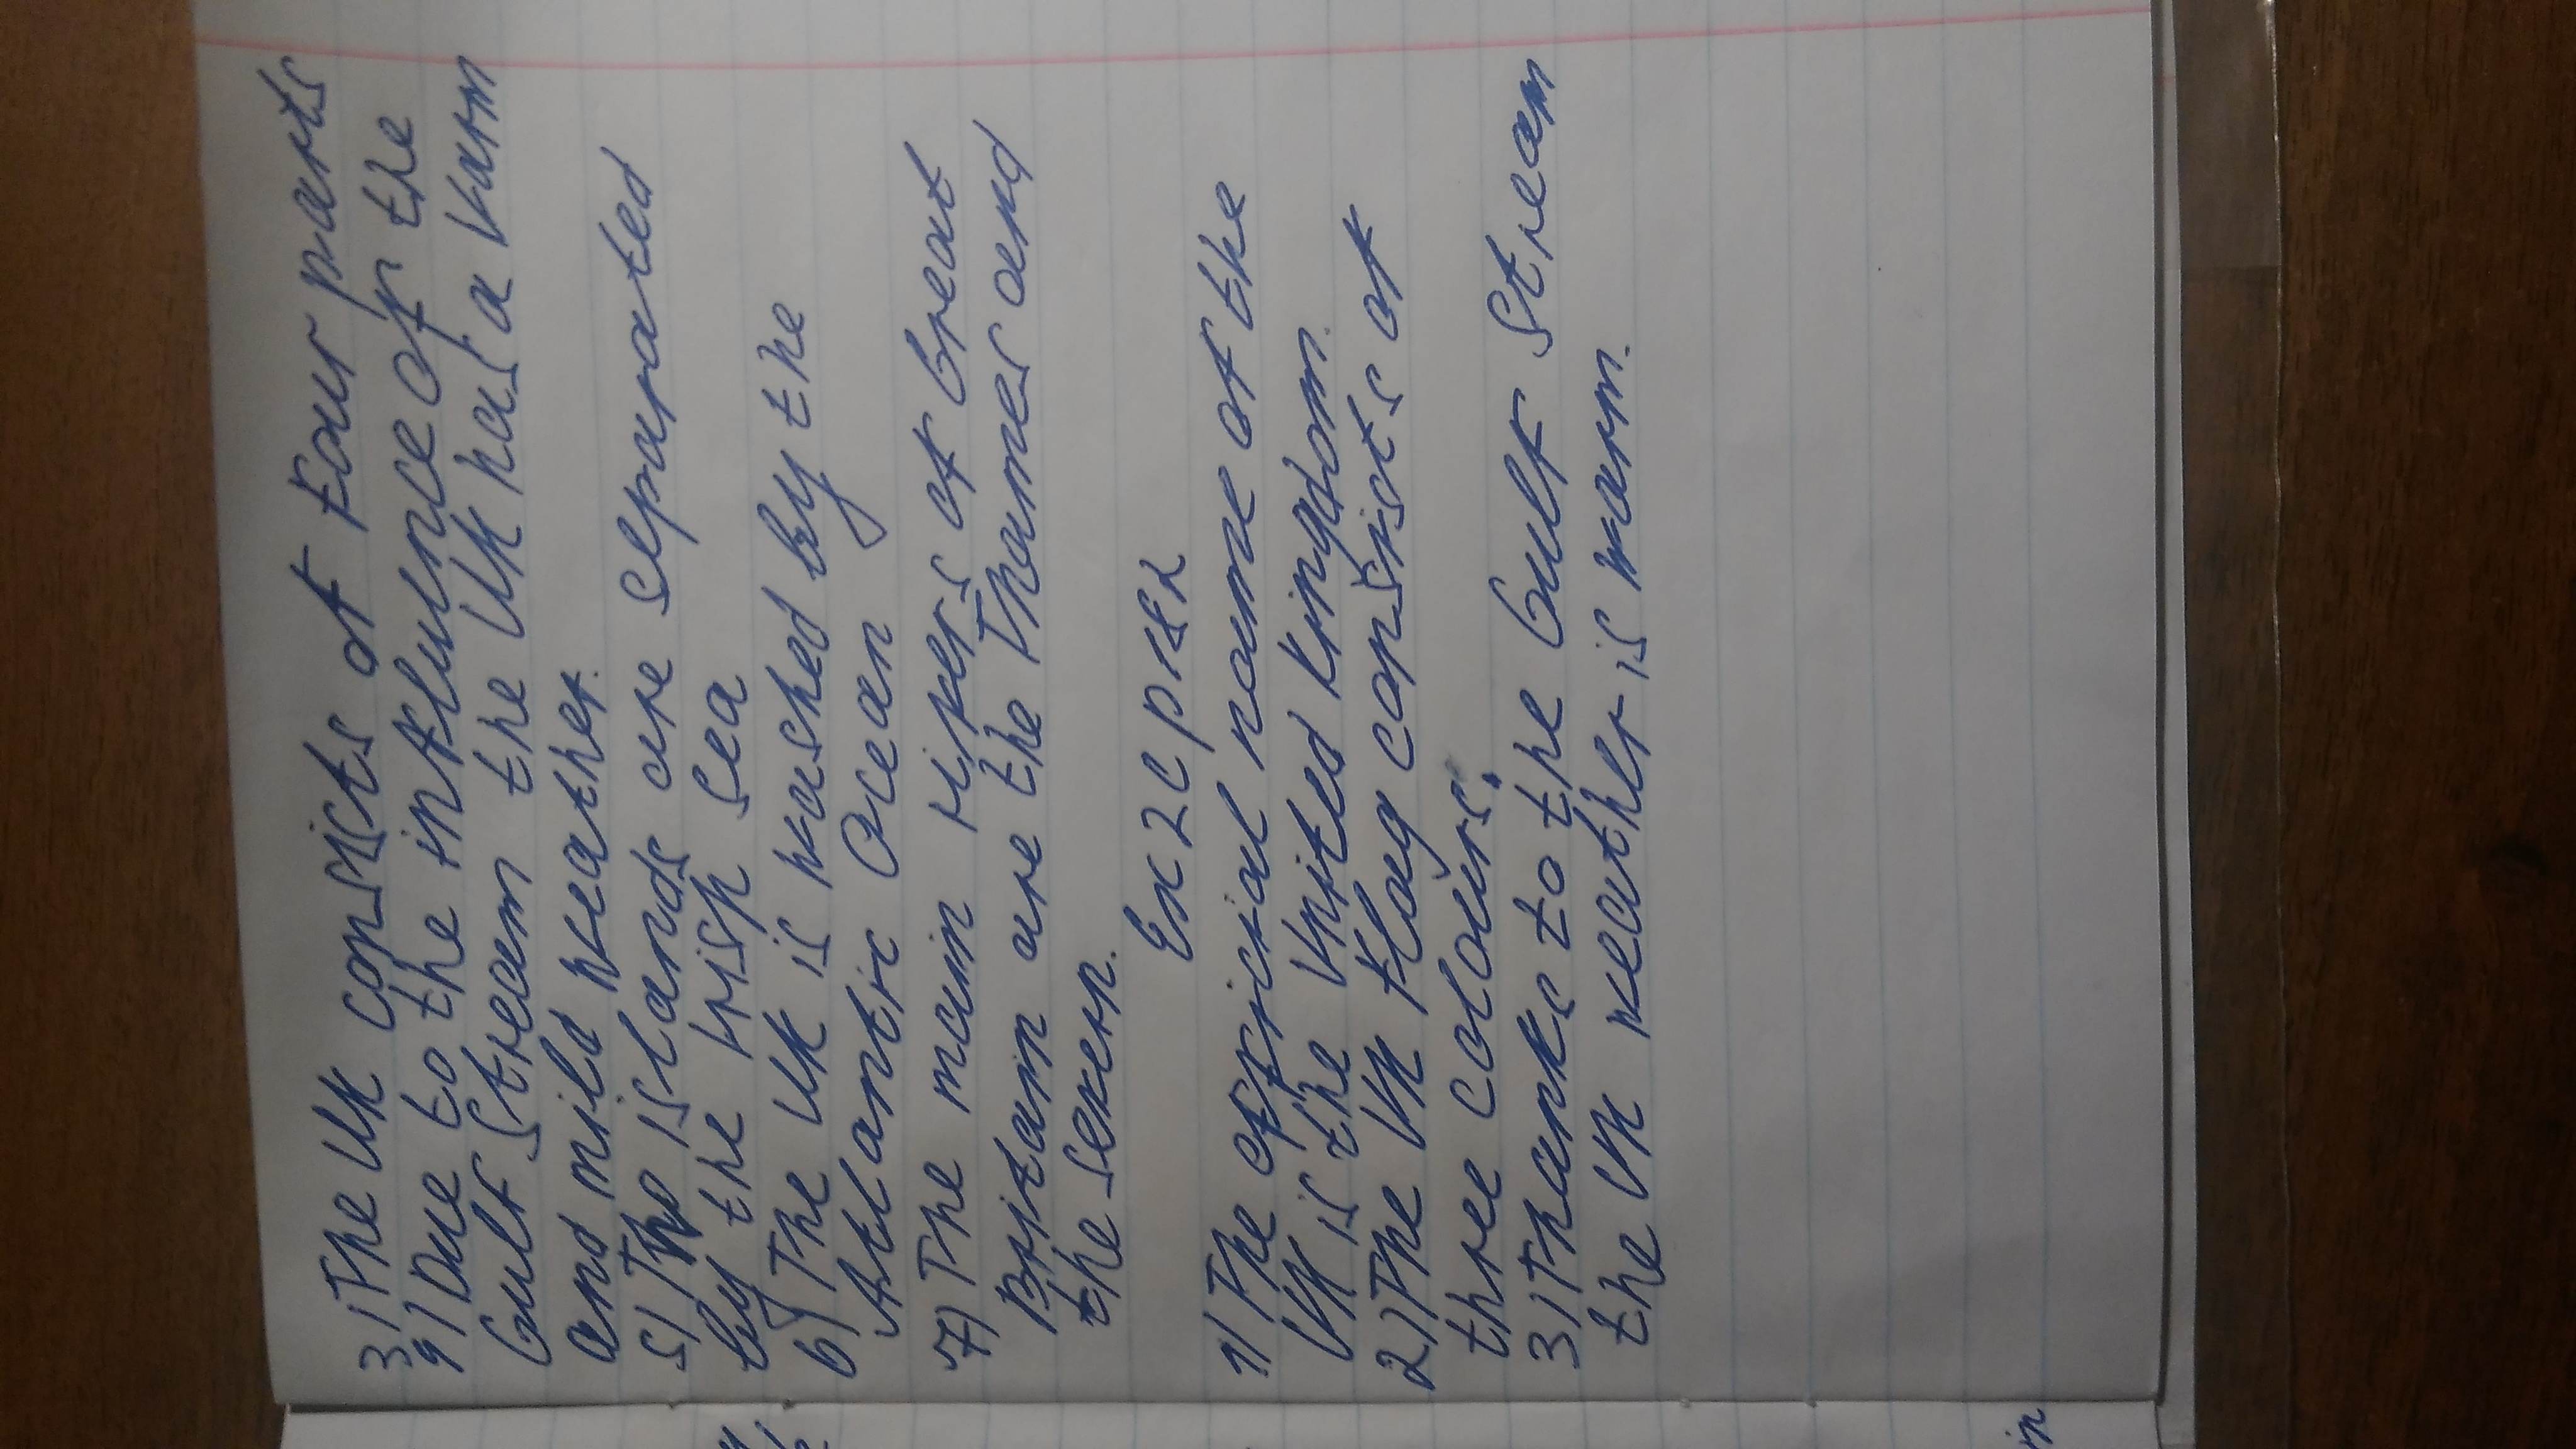 3) The UK consists of four parts
4) Due to the influence of the
Gulf Stream the UK has a warm
and mild weather.
5) Two islands are separated
by the Irish Sea
6) The UK is washed by the
Atlantic Ocean
7) The main rivers of Great
Britain are the Thames and
the Severn.
Ex 2c p
1) The official name of the
UK is the United Kringdom.
2) The UK flag consists of
three colours.
3) Thanks to the Gulf Stream
the UK weather is warm.